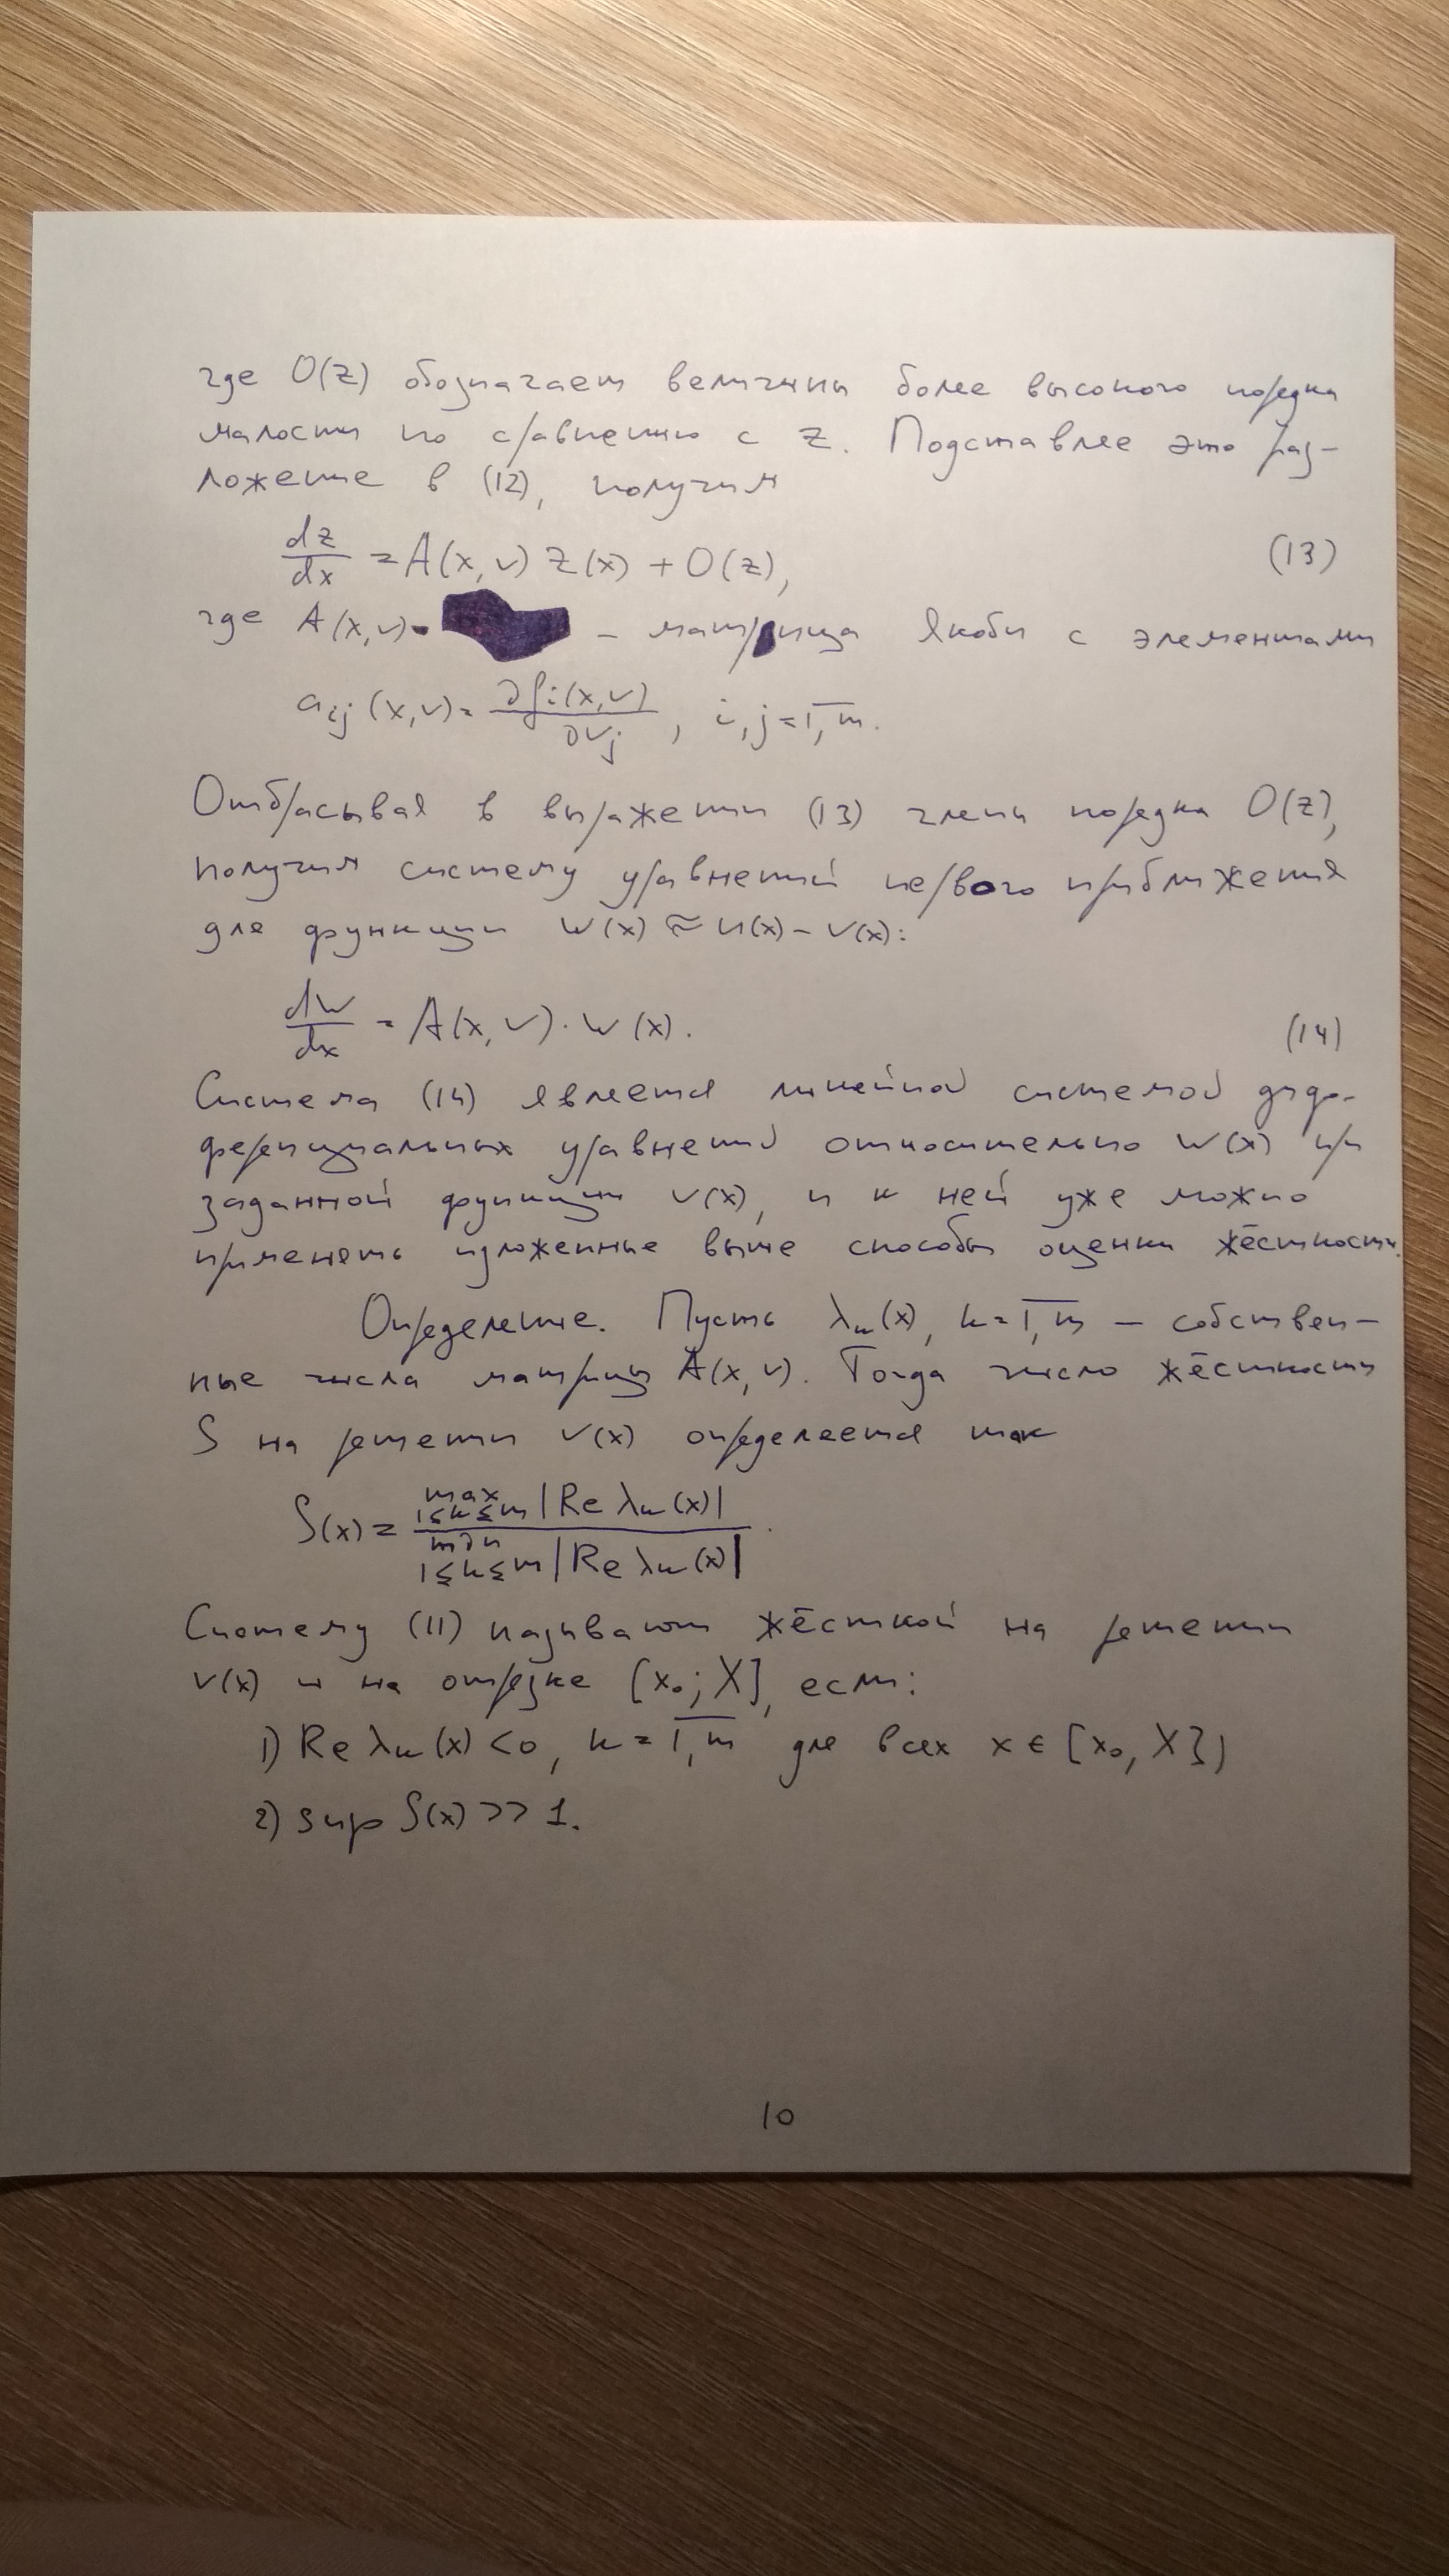 где O(z) обозначает величины более высокого порядка
малости по сравнению с z. Подставляя это раз-
ложение в (12), получим
dz/dx = A(x,v) z(x) + O(z), (13)
где A(x,v) - матрица Якоби с элементами
a_ij (x,v) = ∂f_i(x,v)/∂v_j , i,j = \overline{1,m}.
Отбрасывая в выражении (13) члены порядка O(z),
получим систему уравнений первого приближения
для функции w(x) ≈ u(x) - v(x):
dw/dx = A(x,v)·w(x). (14)
Система (14) является линейной системой диф-
ференциальных уравнений относительно w(x) при
заданной функции v(x), и к ней уже можно
применять изложенные выше способы оценки жёсткости.
Определение. Пусть λ_k(x), k = \overline{1,m} - собствен-
ные числа матрицы A(x,v). Тогда число жёсткости
S на решении v(x) определяется так
S(x) = max_{1≤k≤m} |Re λ_k(x)| / min_{1≤k≤m} |Re λ_k(x)| .
Систему (11) называют жёсткой на решении
v(x) и на отрезке [x₀; X], если:
1) Re λ_k(x) < 0, k = \overline{1,m} для всех x ∈ [x₀, X];
2) sup S(x) >> 1.
10